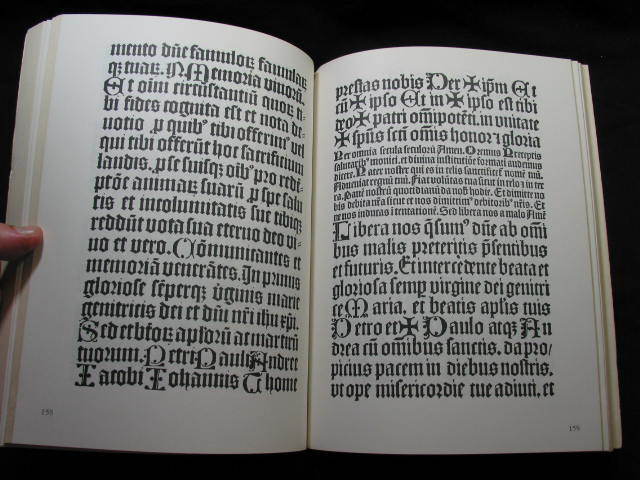 mento dñe famuloꝝ famulaꝝ
qꝫ tuaꝝ. N Memoria vinorū.
Et oim̄ circūstantiū quoꝝ ti
bi fides cognita est et nota de-
uotio ꝑ quibꝰ tibi offerimꝰ vel
qui tibi offerūt hoc sacrificium
laudis. ꝑ se suisqꝫ oībꝰ pro red-
ptōe animaꝝ suarū ꝑ spe salu
tis et incolumitatis sue tibiqꝫ
reddūt vota sua eterno deo vi-
uo et vero. Cōmunicantes et
memoriā venerātes. In primis
gloriose sēperqꝫ v̓ginis marie
genitricis dei et dn̄i nr̄i ihu xp̄i.
Sed et btōꝝ aplōrū ac martirū
tuorum. Petri Pauli Andree
Iacobi Iohannis Thome
158
prestas nobis Per ✠ ip̄m Et
cū ✠ ipso Et in ✠ ipso est tibi
deo ✠ patri om̄ipotēti in vnitate
✠ sp̄us scī om̄is honor ⁊ gloria
Per omnia secula seculorū Amen. Oremus Preceptis
salutaribꝰ moniti, et diuina institutiōe formati audemus
dicere. Pater noster qui es in celis sanctificet᷑ nomē tuū
Adueniat regnū tuū. Fiat volūtas tua sicut in celo ⁊ in ter
ra. Panē nostrū quotidianū da nobis hodie. Et dimitte no
bis debita nr̄a sicut et nos dimittimꝰ debitoribꝰ nr̄is. Et
ne nos inducas ī tentationē. Sed libera nos a malo Amē
Libera nos q̄sumꝰ dn̄e ab omi
bus malis preteritis p̄sentibus
et futuris. Et intercedente beata et
gloriosa semp virgine dei genitri
ce Maria, et beatis apl̄is tuis
Petro et ✠ Paulo atqꝫ An
drea cū omnibus sanctis. da pro-
picius pacem in diebus nostris,
vt ope misericordie tue adiuti, et
159